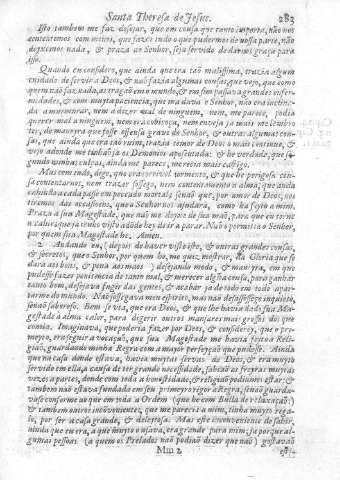 Santa Theresa de Jesus. 283
Isto tambem me faz desejar, que em cousa que tanto importa, não nos
contentemos com menos, que fazer tudo o que pudermos de nossa parte, não
deixemos nada, & praza ao Senhor, seja servido de darnos graça para
isso.
Quando eu considero, que ainda que era tão malissima, trazia algum
cuidado de servir a Deos, & não fazia algumas cousas, que vejo, que como
quem não faz nada, as tragão em o mundo, & em fim passava grandes enfer-
midades, & com muyta paciencia, que ma dava o Senhor, não era inclina-
da a murmurar, nem a dizer mal de ninguem, nem me parece, podia
querer mal a ninguem, nem era cobiçosa, nem enveja já mais me lembro
ter, de maneyra que fosse offensa grave do Senhor, & outras algumas cou-
sas, que ainda que era tão ruim, trazia temor de Deos o mais continuo, &
vejo adonde me tinhão já os Demonios aposentada: & he verdade, que se-
gundo minhas culpas, ainda me parece, merecia mais castigo.
Mas com tudo, digo, que era terrivel tormento, & que he perigosa cou-
sa contentarnos, nem trazer sossego, nem contentamento a alma, que anda
cahindo a cada passo em peccado mortal; senão que, por amor de Deos, nos
tiremos das occasiões, que o Senhor nos ajudará, como ha feyto a mim.
Praza a sua Magestade, que não me deyxe de sua mão, para que eu torne
a cahir, que já tenho visto adonde hey de ir a parar. Não o permitta o Senhor,
por quem sua Magestade he. Amen.
2 Andando eu, (depois de haver visto isto, & outras grandes cousas,
& secretos, que o Senhor, por quem he, me quiz mostrar, da Gloria que se
dará aos bons, & pena aos maos) desejando modo, & maneyra, em que
pudesse fazer penitencia de tanto mal, & merecer alguma cousa, para ganhar
tanto bem, desejava fugir das gentes, & acabar já de todo em todo apar-
tarme do mundo. Não sossegava meu espirito, mas não desassossego inquieto,
senão saboroso. Bem se via, que era Deos, & que lhe havia dado sua Ma-
gestade à alma calor, para digerir outros manjares mais grossos dos que
comia. Imaginava, que poderia fazer por Deos, & considerey, que o pri-
meyro, era seguir a vocação, que sua Magestade me havia feito à Reli-
gião, guardando minha Regra com a mayor perfeyção que pudesse. Ainda
que na casa donde estava, havia muytas servas de Deos, & era muyto
servido em ella, a causa de ter grande necessidade, sahião as freyras muytas
vezes a partes, donde com toda a honestidade, & religião podiamos estar: &
tambem não estava fundada em seu primeyro rigor a Regra, senão guarda-
vase conforme ao que em toda a Ordem (que he com Bulla de relaxação;)
& tambem outros inconvenientes, que me parecia a mim, tinha muyto rega-
lo, por ser a casa grande, & deleytosa. Mas este inconveniente de sahir,
ainda que eu era, a que muyto o usava, era grande para mim; já porque al-
gumas pessoas (a quem os Prelados não podião dizer que não) gostavão
Mm 2